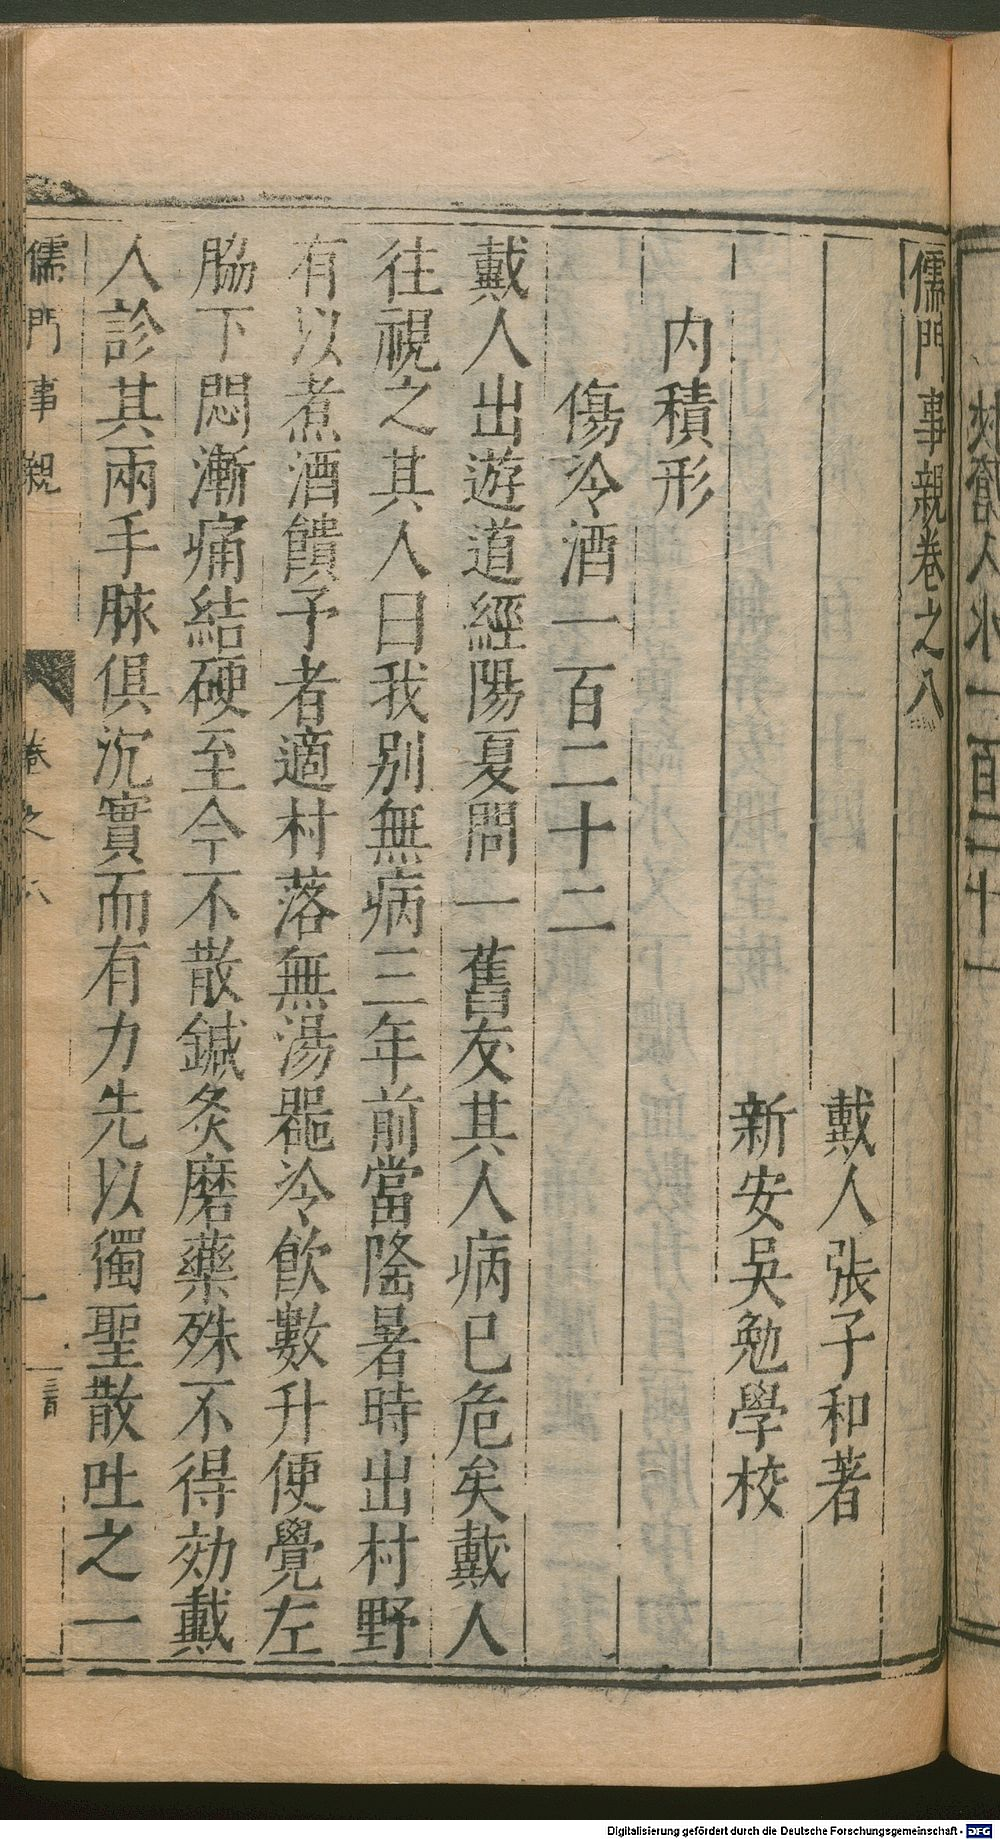 儒門事親卷之八
戴人張子和著
新安吳勉學校
內積形
傷冷酒一百二十二
戴人出遊道經陽夏問一舊友其人病已危矣戴人
往視之其人曰我別無病三年前當隆暑時出村野
有以煮酒饋予者適村落無湯器冷飲數升便覺左
脇下悶漸痛結硬至今不散鍼灸磨藥殊不得効戴
人診其兩手脉俱沉實而有力先以獨聖散吐之一
儒門事親
卷之八
一
Digitalisierung gefördert durch die Deutsche Forschungsgemeinschaft - DFG